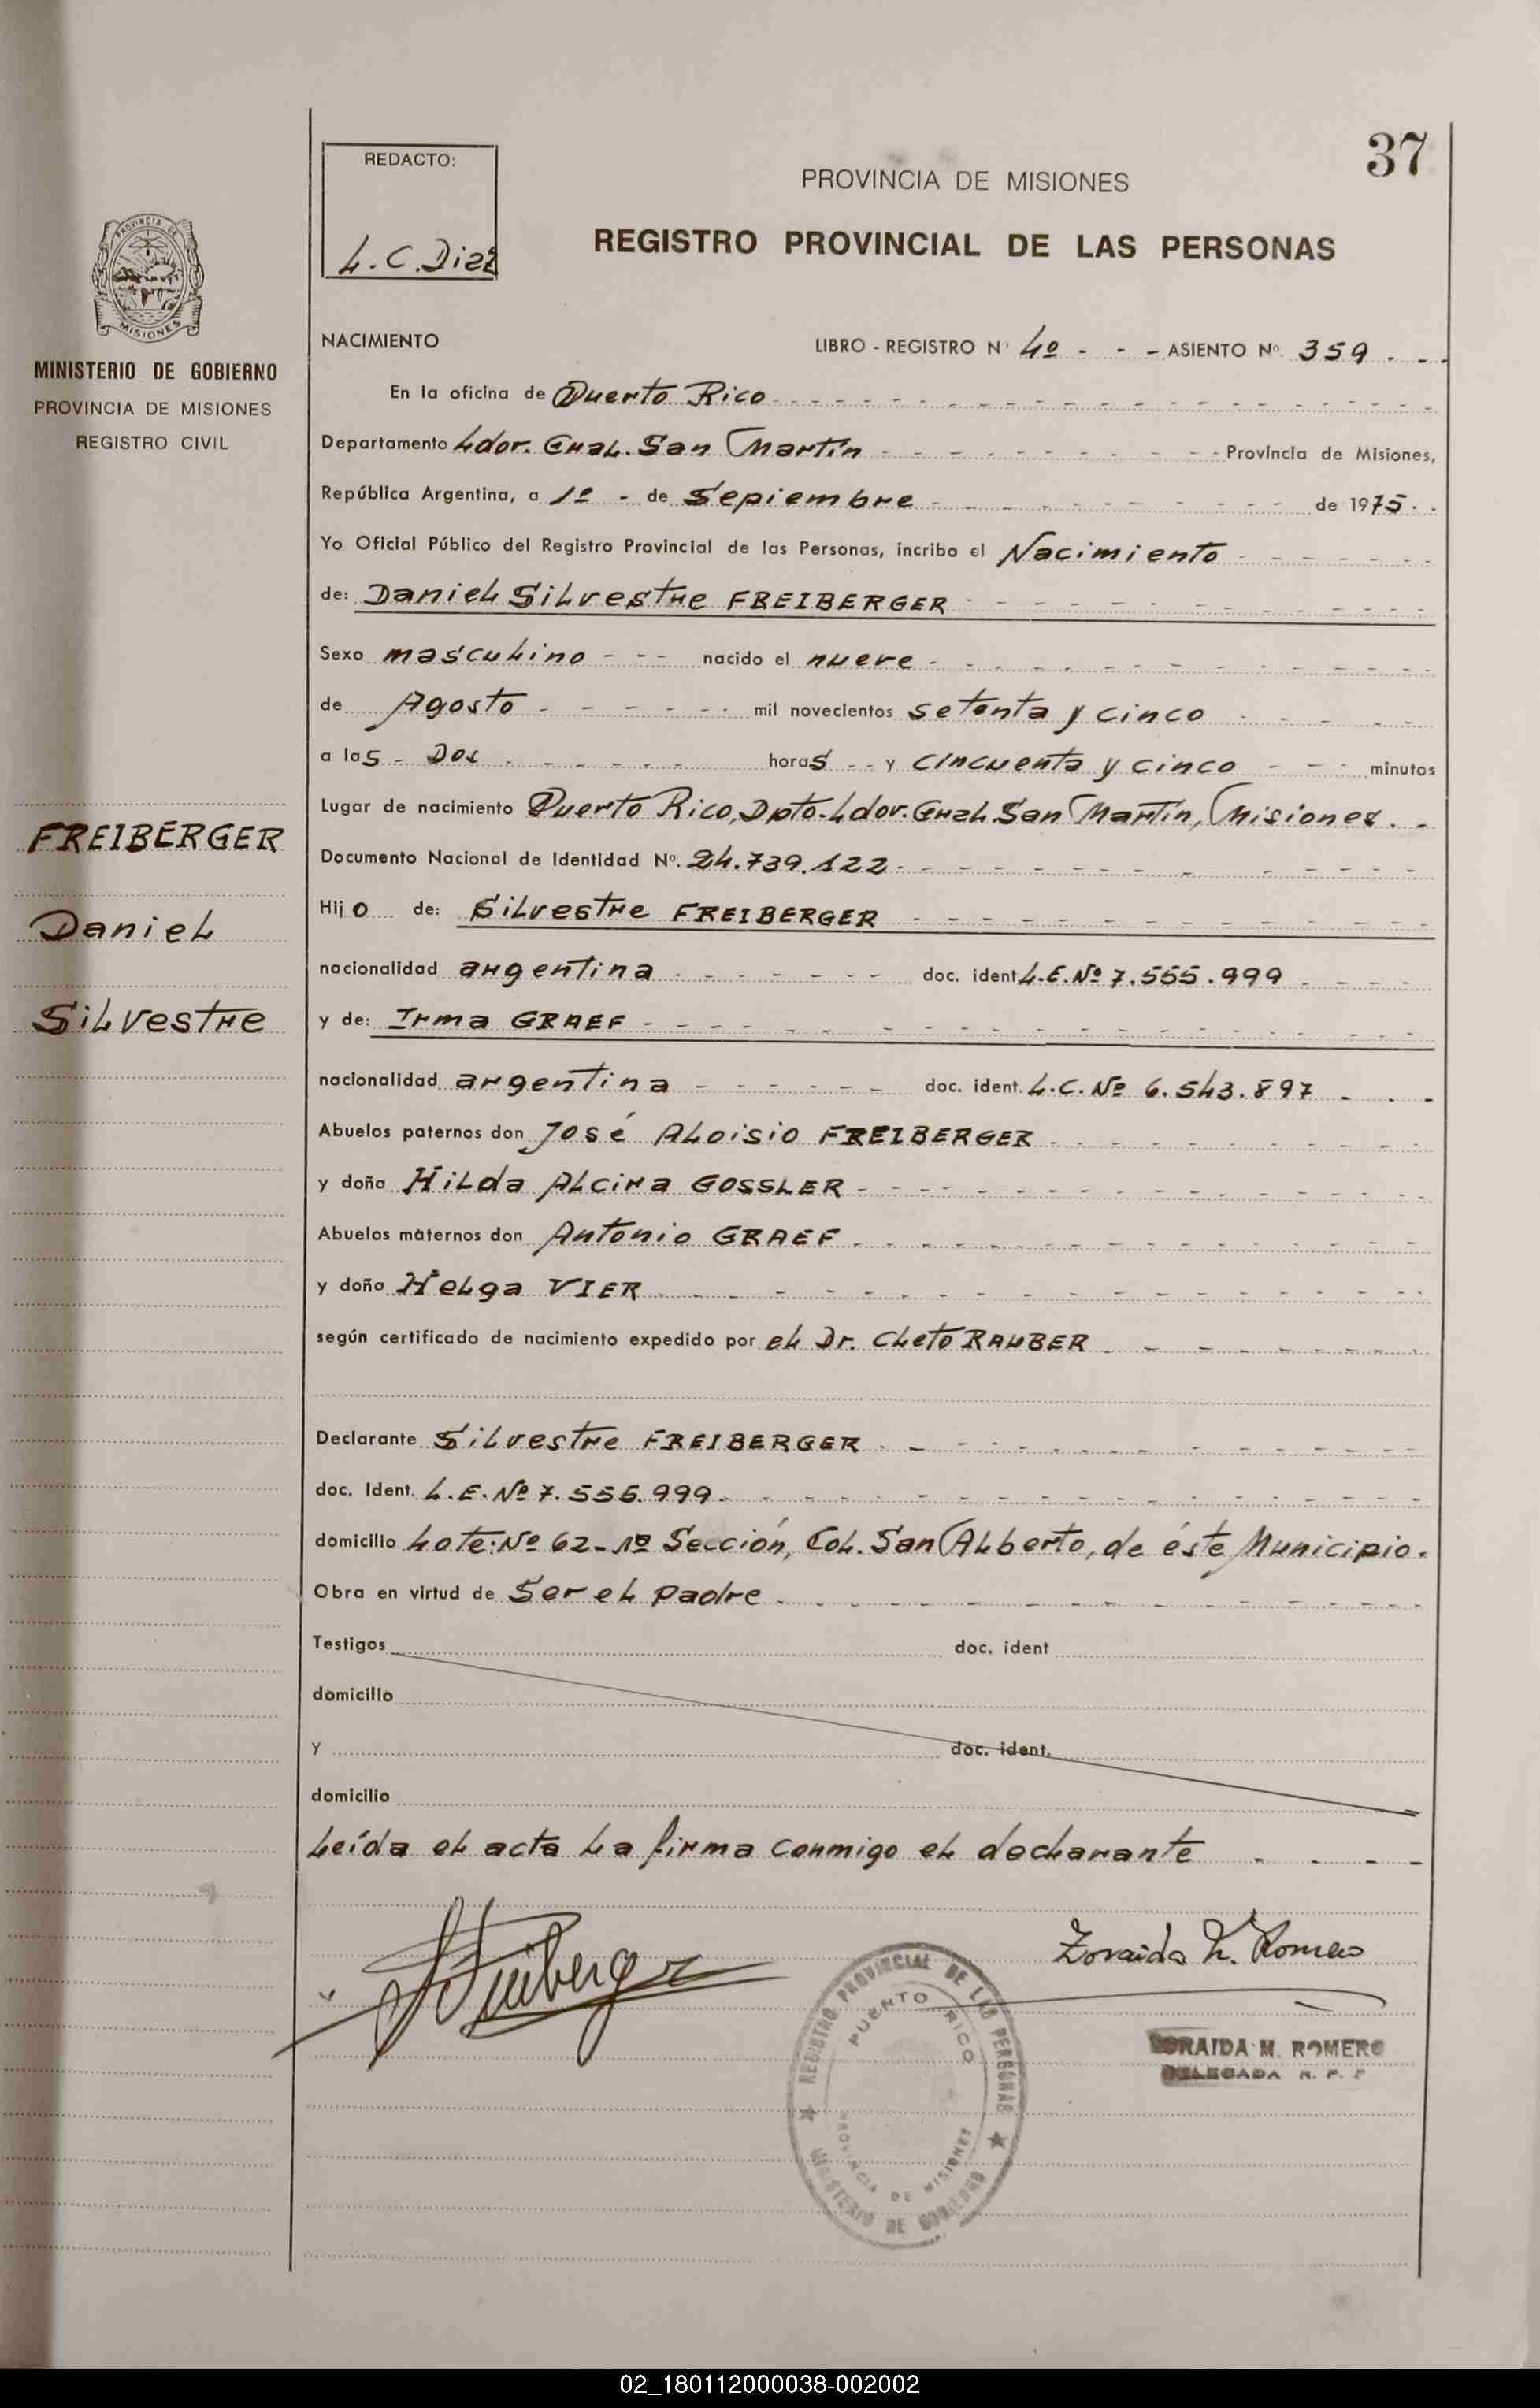 37
REDACTO:
L.C. Diez
PROVINCIA DE MISIONES
REGISTRO PROVINCIAL DE LAS PERSONAS
PROVINCIA DE
MISIONES
MINISTERIO DE GOBIERNO
PROVINCIA DE MISIONES
REGISTRO CIVIL
NACIMIENTO LIBRO - REGISTRO N° 4º - - - ASIENTO Nº. 359 - - -
En la oficina de Puerto Rico
Departamento Ldor. Gral. San Martín Provincia de Misiones,
República Argentina, a 1º - de Sepiembre de 1975
Yo Oficial Público del Registro Provincial de las Personas, incribo el Nacimiento
de: Daniel Silvestre FREIBERGER
Sexo masculino - - - nacido el nueve
de Agosto mil novecientos setenta y cinco
a las - Dos horas - - y cincuenta y cinco minutos
Lugar de nacimiento Puerto Rico, Dpto. Ldor. Gral. San Martín, Misiones.
Documento Nacional de Identidad Nº. 24.739.122
Hijo de: Silvestre FREIBERGER
nacionalidad argentina doc. ident L.E.Nº 7.555.999
y de: Irma GRAEF
nacionalidad argentina doc. ident. L.C. Nº 6.543.897
Abuelos paternos don José Aloisio FREIBERGER
y doña Hilda Alcira GOSSLER
Abuelos maternos don Antonio GRAEF
y doña Helga VIER
según certificado de nacimiento expedido por el Dr. Cleto RAUBER
Declarante Silvestre FREIBERGER
doc. Ident. L.E. Nº 7.555.999
domicilio Lote: Nº 62 - 1º Sección, Col. San Alberto, de éste Municipio.
Obra en virtud de Ser el padre
Testigos doc. ident
domicilio
y doc. ident.
domicilio
Leída el acta la firma conmigo el declarante
FREIBERGER
Daniel
Silvestre
Freiberger
Zoraida M. Romero
ZORAIDA M. ROMERO
DELEGADA R. P. P
REGISTRO PROVINCIAL DE LAS PERSONAS
PUERTO RICO
PROVINCIA DE MISIONES
MINISTERIO DE GOBIERNO
02_180112000038-002002